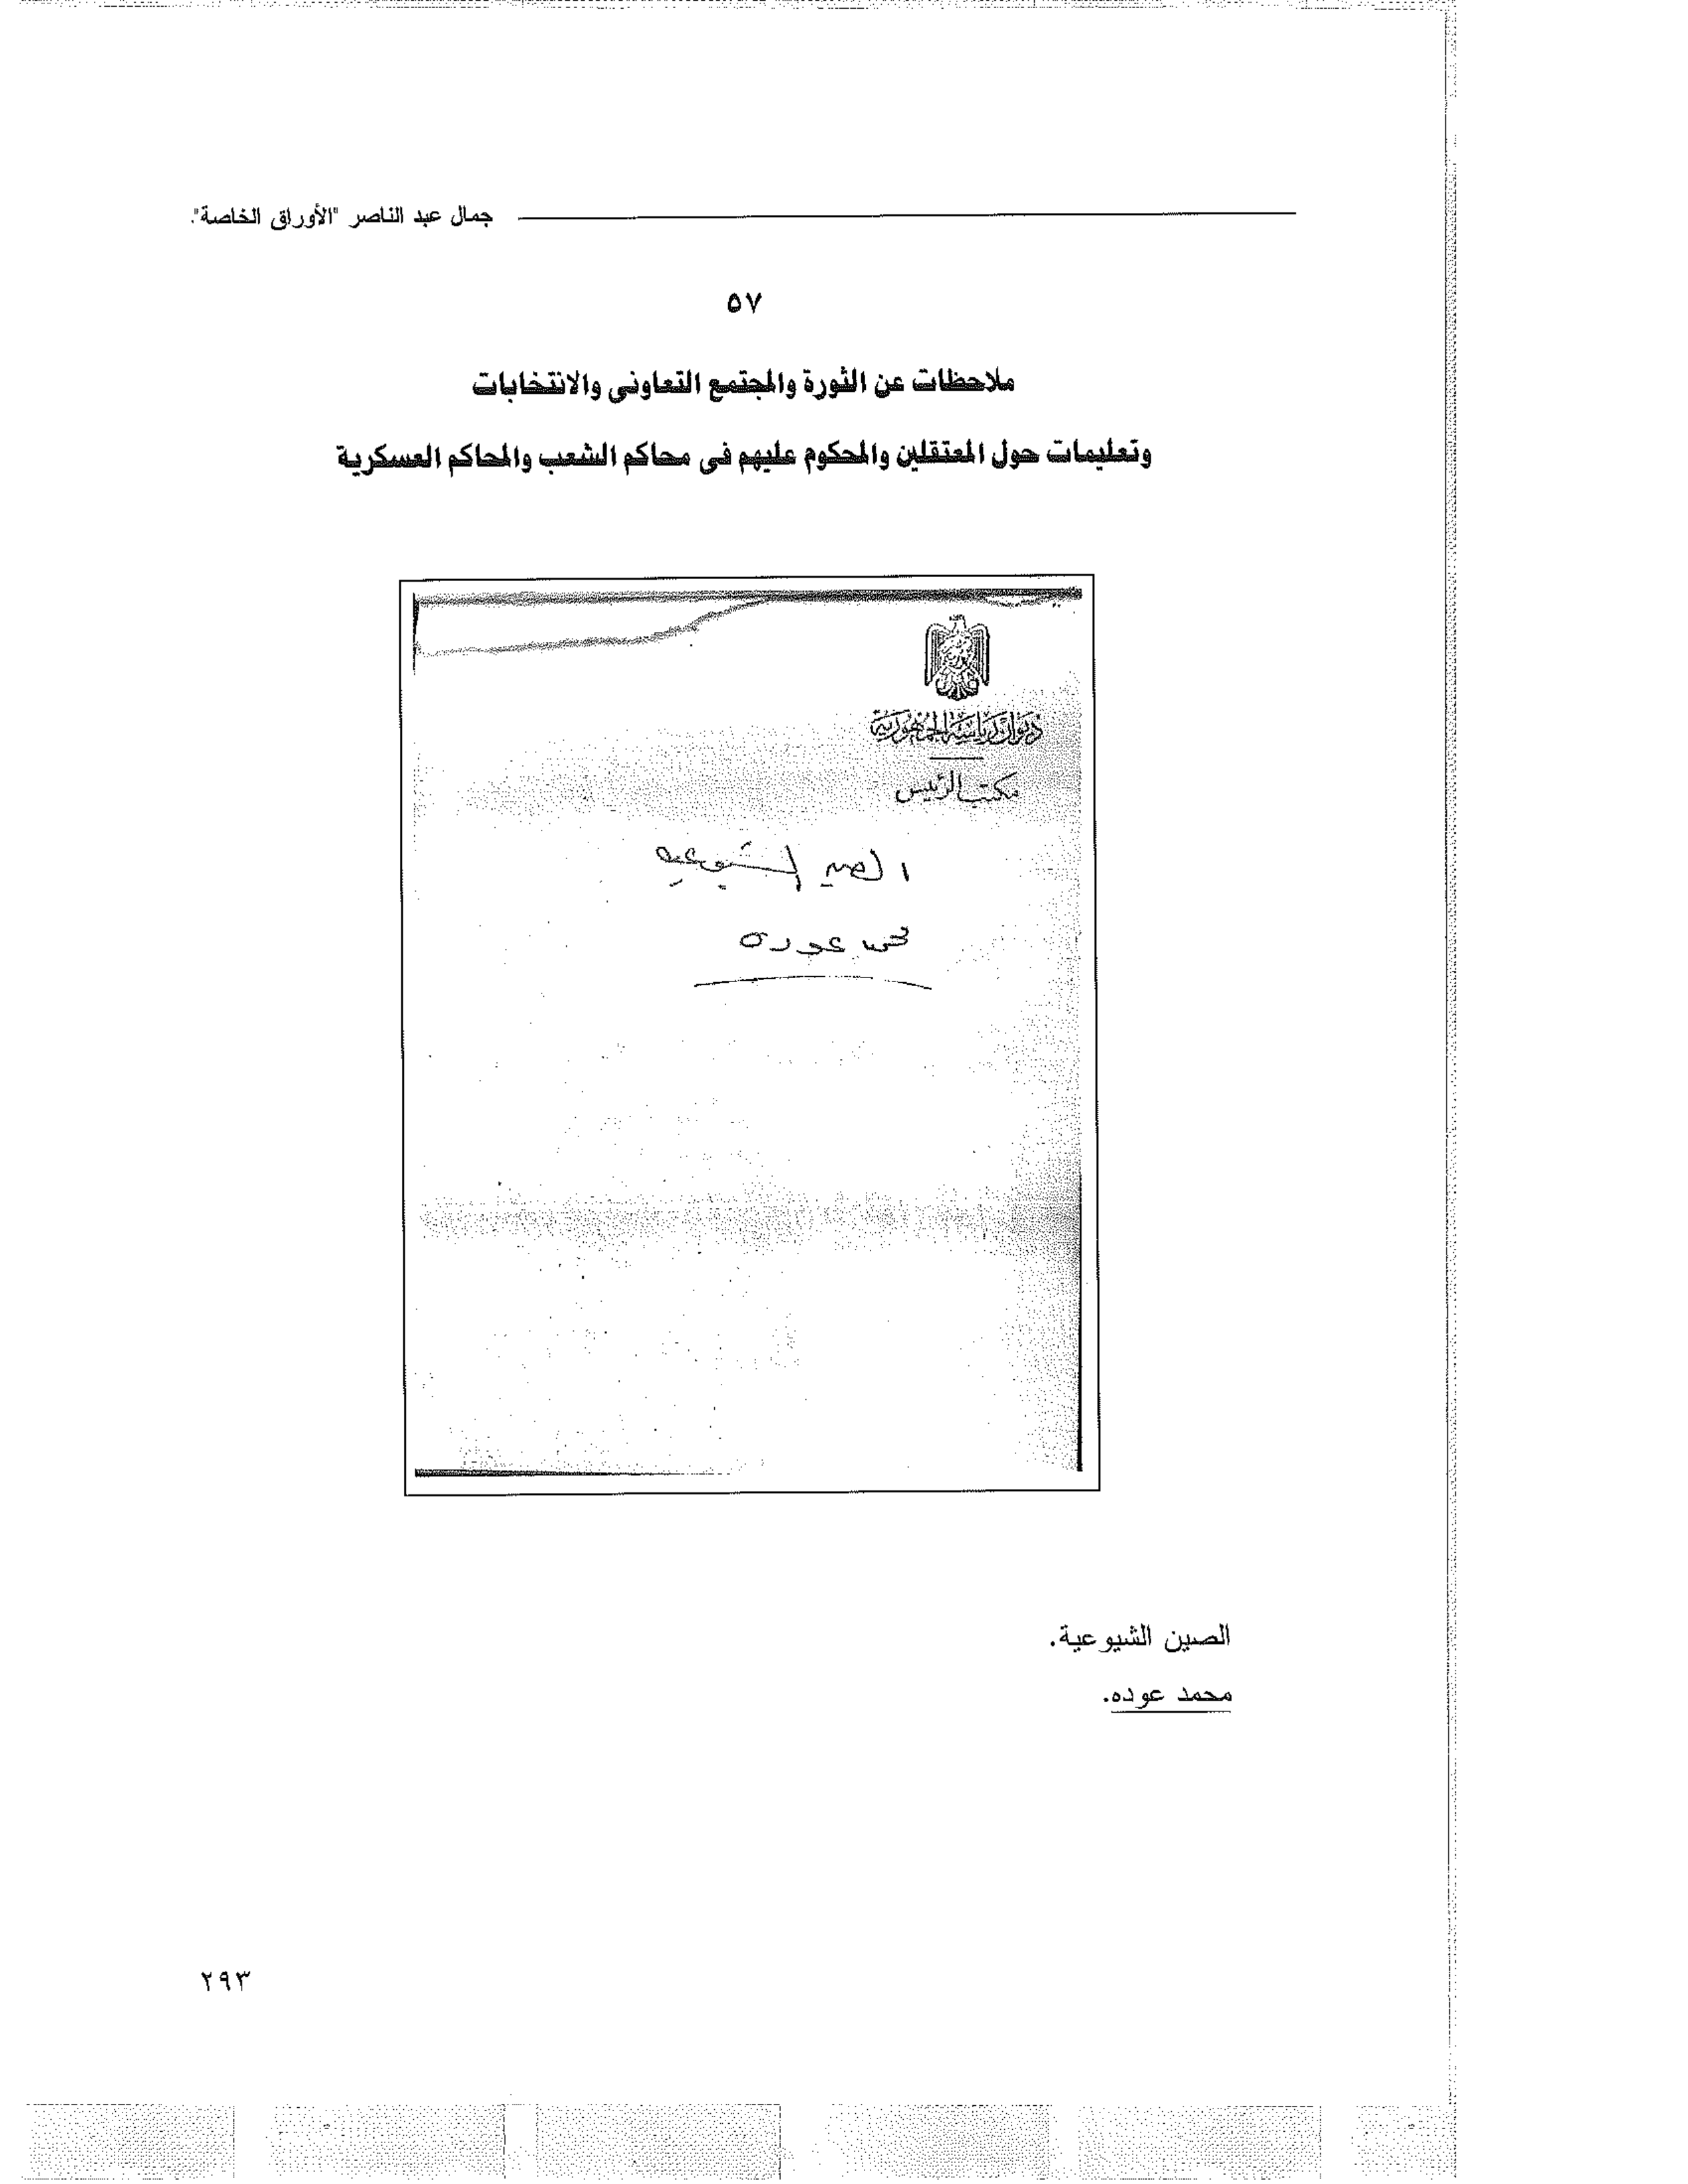 جمال عبد الناصر "الأوراق الخاصة".
٥٧
ملاحظات عن الثورة والمجتمع التعاونى والانتخابات
وتعليمات حول المعتقلين والمحكوم عليهم فى محاكم الشعب والمحاكم العسكرية
ديوان رياسة الجمهورية
مكتب الرئيس
الصين الشيوعيه
محمد عوده
الصين الشيوعية.
محمد عوده.
٢٩٣